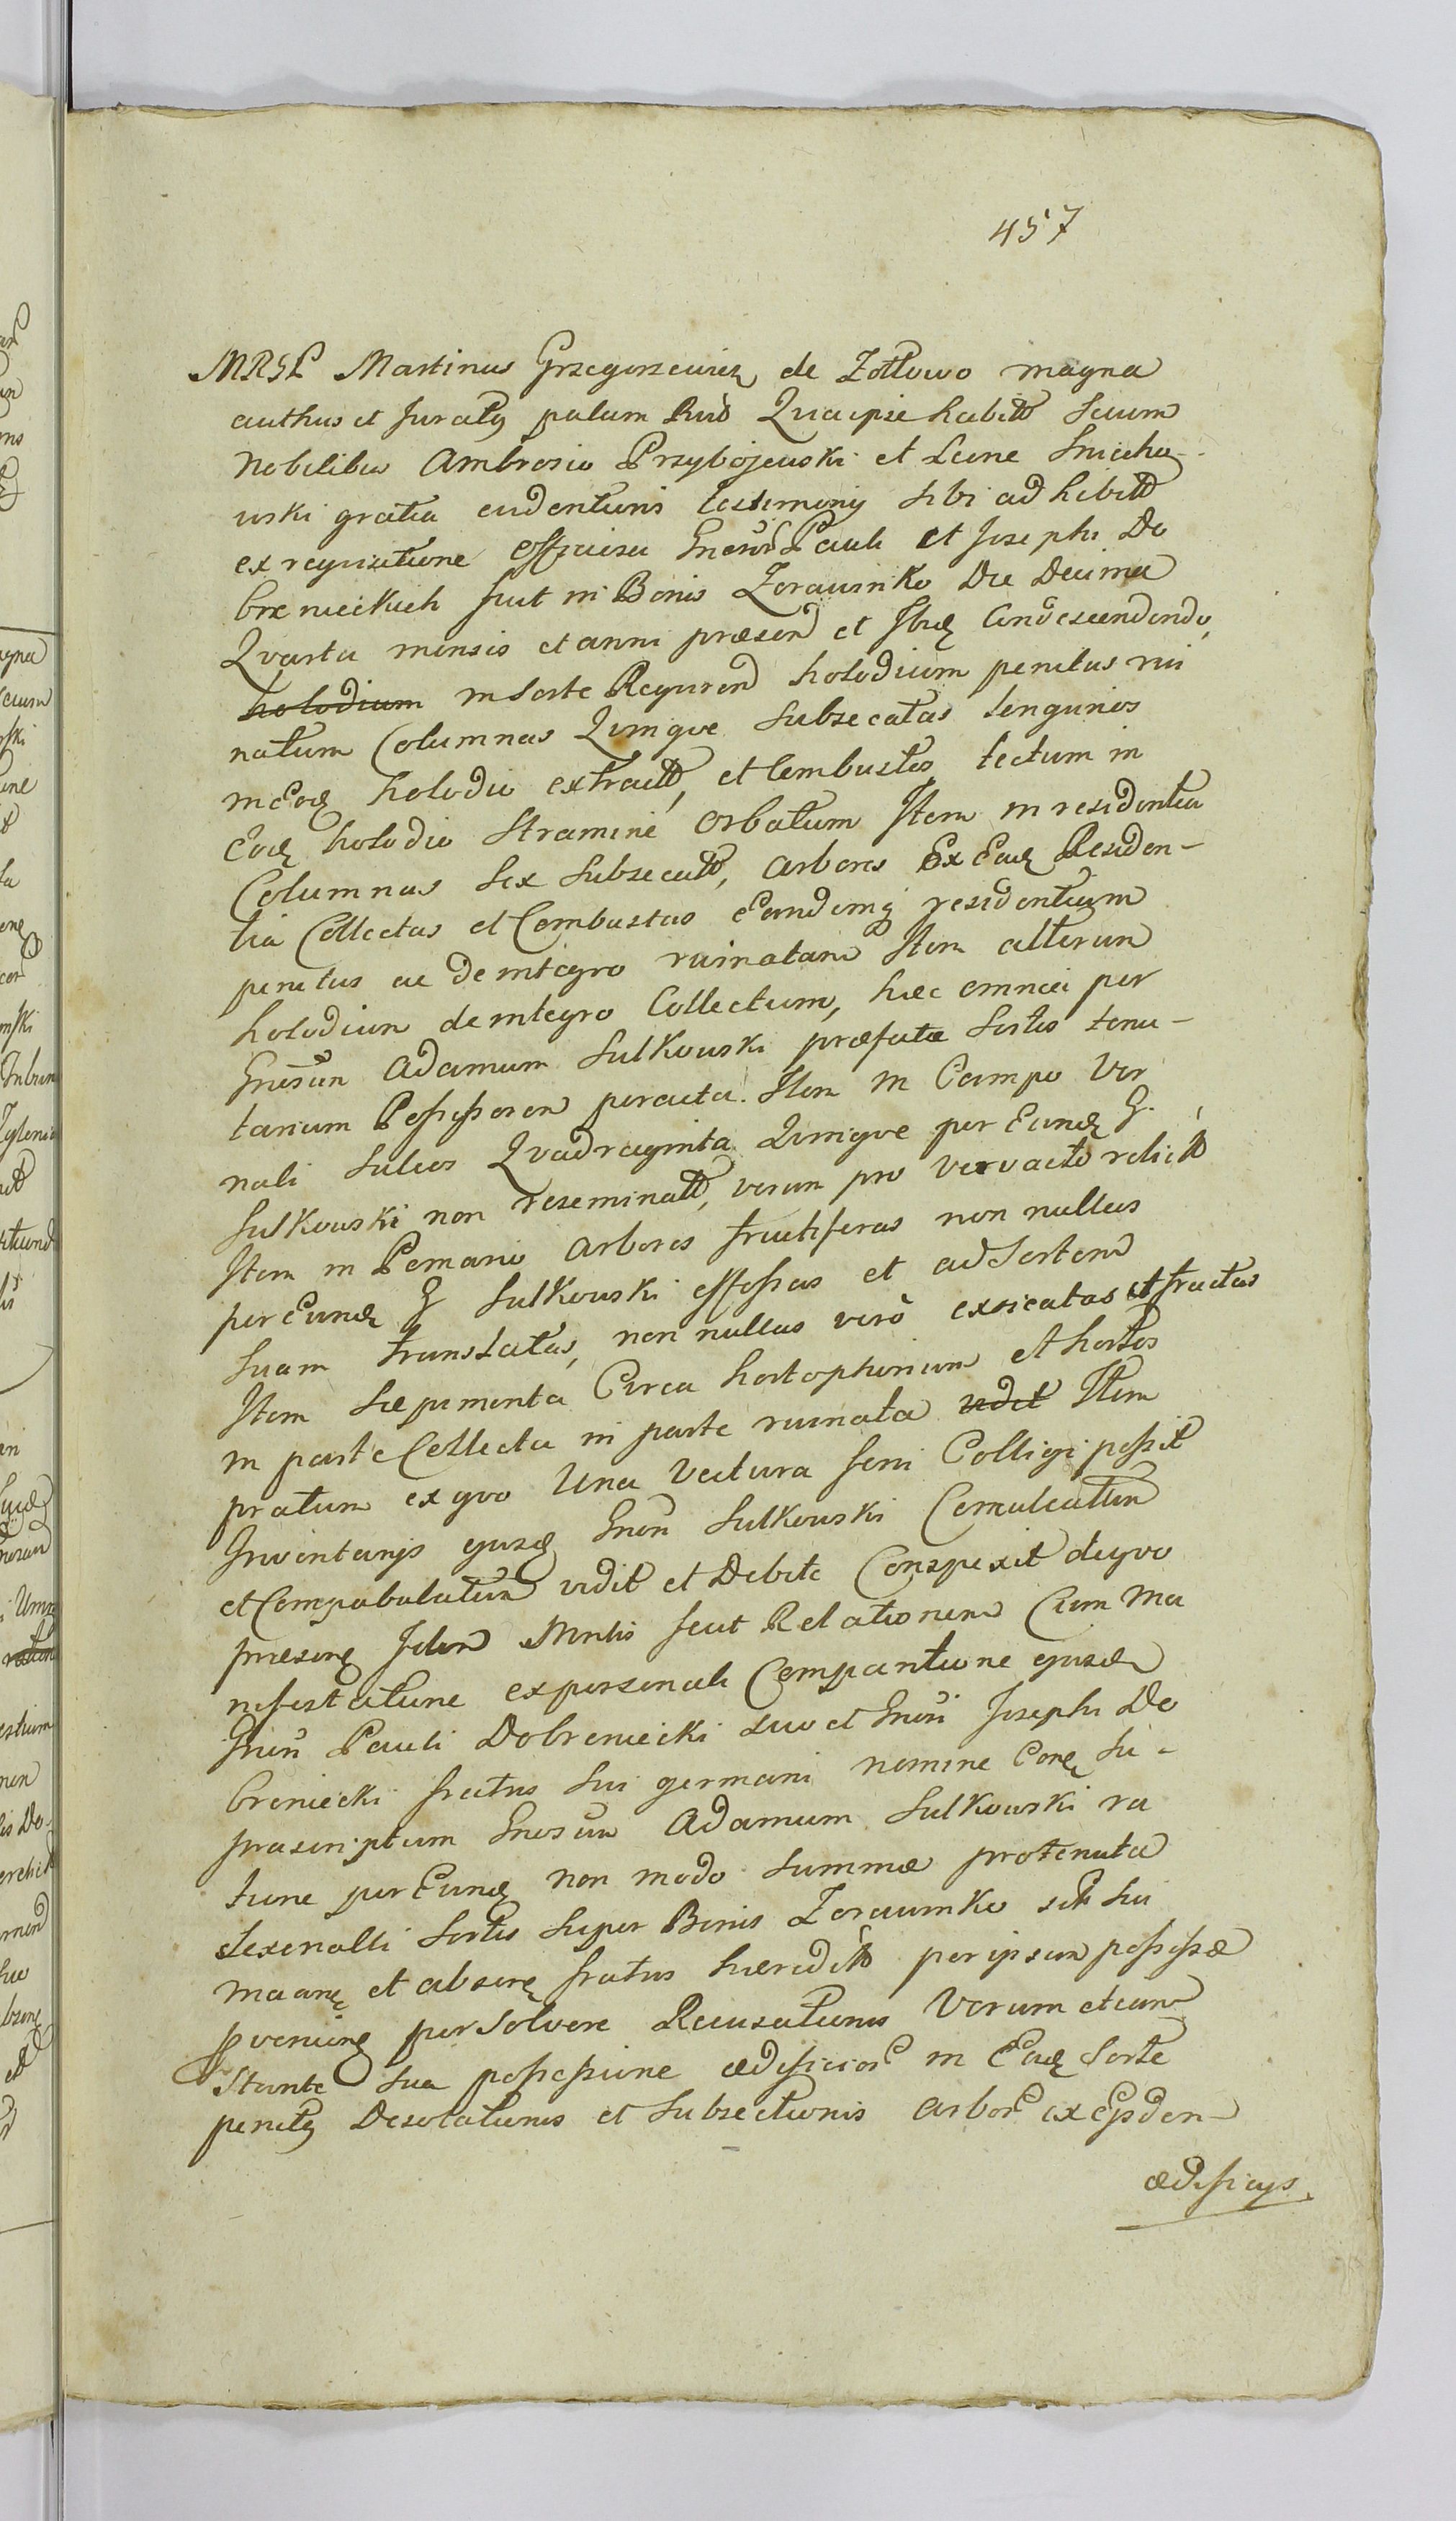 457
MRSL Martinus Grzegorzewicz de Zołtowo magna
authus et Juratg palam Rnd Quaipse habitt secum
Nobilibus Ambrosio Przybojewski et Leone Sniecho-
wski gratia evidentioris testimonij sibi adhibitt
ex requisitione officiosa Gneror Pauli et Josephi Do
brznieckich fuit in Bonis Zorawinko Die Decima
Qvarta mensis et anni præsen et Ibiq Condescendendo,
holodium in sorte Requiren holodium penitus rui
natum Columnas Qvinqve Subsecatas longurios
in Eod holodio extractt, et Combustos, tectum in
Eod holodio Stramine orbatum Item in residentia
Columnas Sex Subsecatt, arbores Ex Ead Residen-
tia Collectas et Combustas eandemq residentiam
penitus ac de integro ruinatam Item alterum
holodium de integro Collectum, hæc omnia per
Gnosum Adamum Sulkowski præfatæ Sortis tenu-
tarium Possessorem peracta. Item in Campo Ver
nali Sulcos Qvadraginta Qvinqve per Eund G.
Sulkowski non reseminatt, verum pro vervacto relictt
Item in Pomario arbores fructiferas non nullas
per Eund G Sulkowski effossas et ad Sortem
Suam translatas, non nullas vero exsicatas et fractas
Item Sæpimenta Circa hortophorium et hortos
in parte Collecta in parte ruinata vidit Item
pratum ex qvo Una Vectura feni Colligi possit
Inventarijs ejusd Gnon Sulkowski Conculcatum
et Compabulatum vidit et Debite Conspexit de qvo
præsenq Idem Minlis fecit Relationem Cum Ma
nifestatione ex personali Comparitione ejusd
Gnon Pauli Dobreniecki suo et Gnosi Josephi Do
breniecki fratris Sui germani nomine Conq Su-
prascriptum Gnosum Adamum Sulkowski ra
tione per Eund non modo Summæ protenuta
sexenalli Sortis Super Bonis Zorawinko sibi sui
maanq et absenq fratris hæreditt per ipsum possessæ
pvenienq persolvere Recusationis Verum etiam
Stante Sua possessione ædificior in Ead Sorte
penitg Desolationis et Subsectionis arbor ex Ejsdem-
ædificijs.